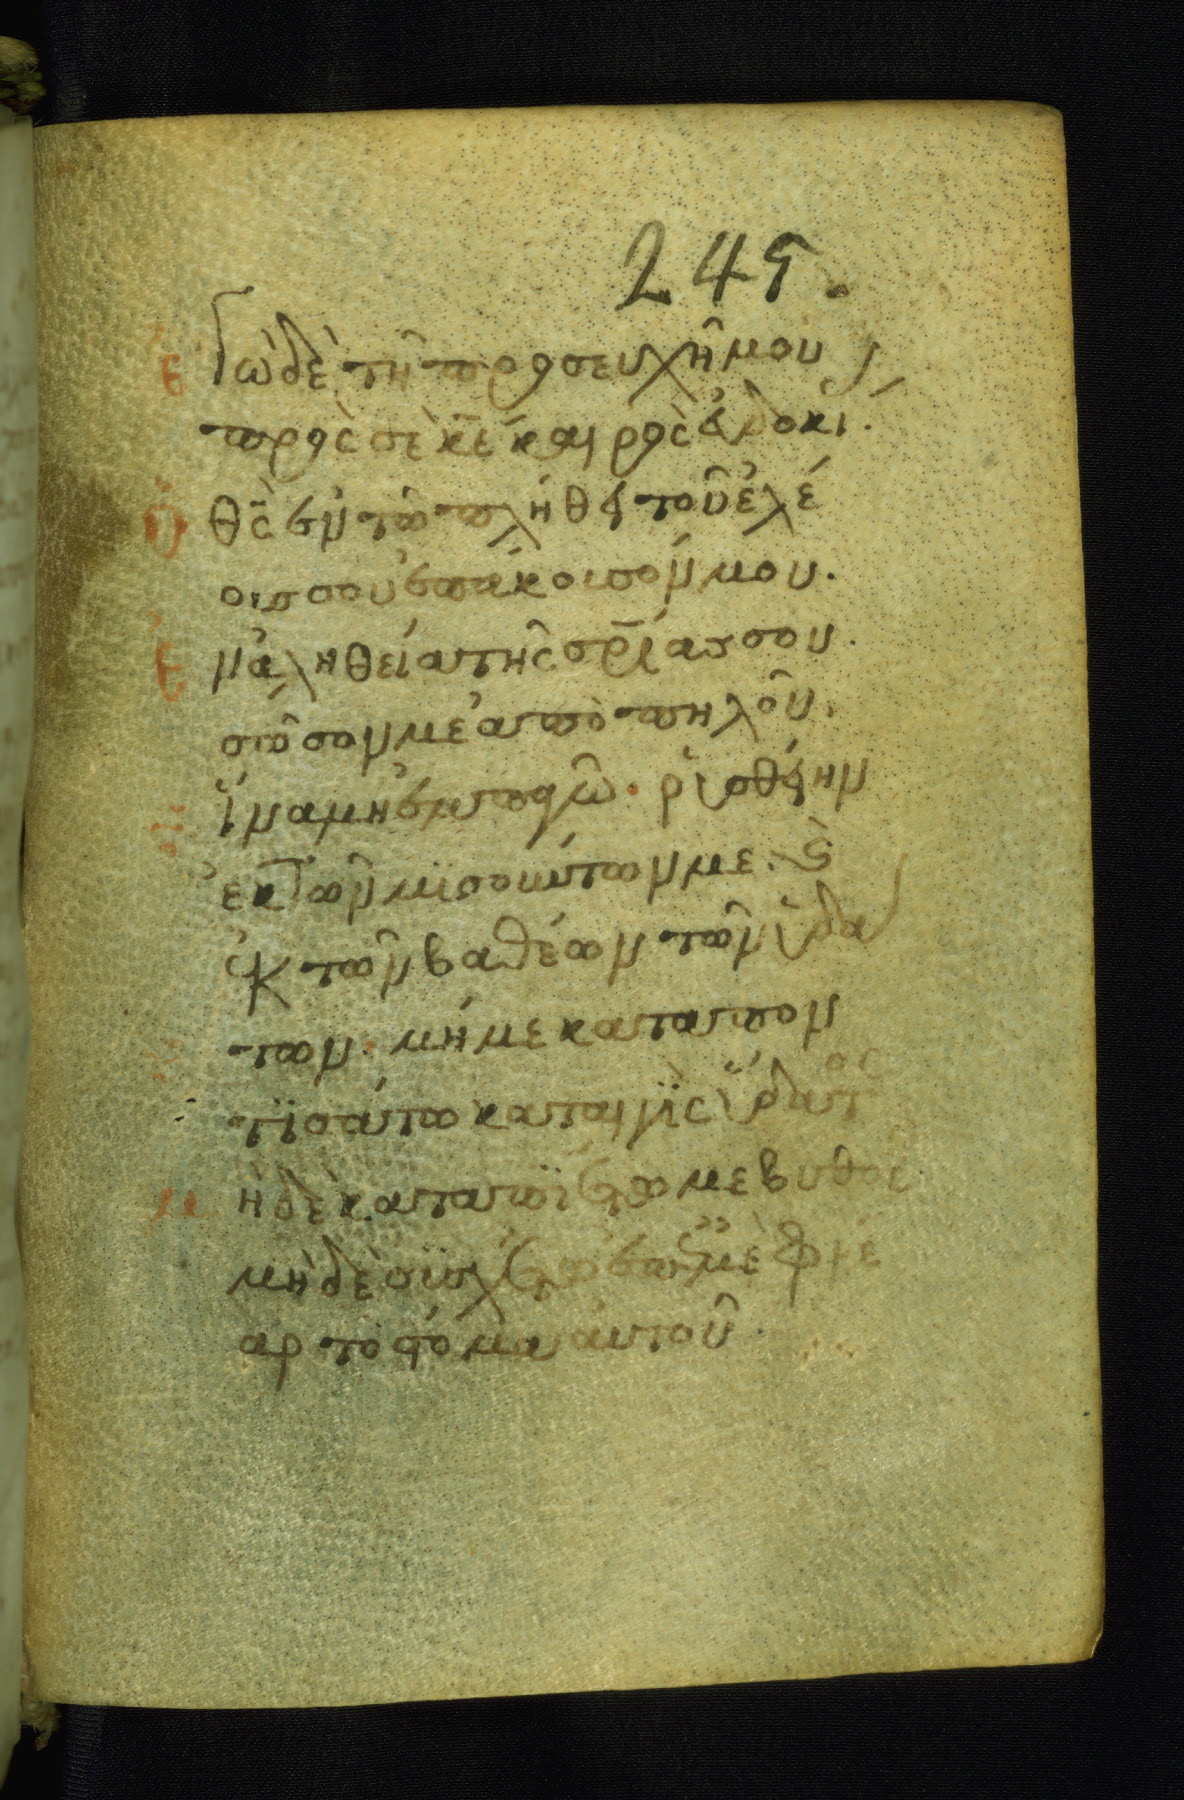 245.
ἐγὼ δὲ τῆ προσευχῆ μου
πρὸς σὲ κ̅ε̅ καιρὸς εὐδοκί
ὁ θ̅ς̅ ἐν τῶ πλήθει τοῦ ἐλέ
οις σου ἐπάκουσόν μου.
ἐν ἀληθεία τῆς σ̅ρ̅ίας σου.
σῶσόν με ἀπὸ πηλοῦ.
ἵνα μὴ ἐμπαγῶ. ῥυσθείην
ἐκ τῶν μισούντων με. ϗ
ἐκ τῶν βαθέων τῶν ὑδά
των. μή με καταπον
τισάτω καταιγὶς ὕδατος
μηδὲ καταπιέτω με βυθός
μηδὲ συσχέτω ἐπ' ἐμὲ φρέ
αρ τὸ στόμα αὐτοῦ.